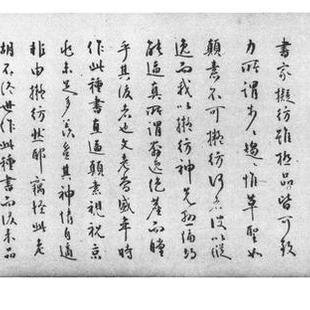 書家擬仿雖極品皆可致
力所謂步〻趨惟草聖如
顛素不可擬仿何者彼以縱
逸而我以擬仿神先
能逼真所謂奔逸絕塵而瞠
乎其後者也文盛年時
作此種書直逼顛素視祝京
兆未足多其神情自適
非由擬仿然耶竊怪此老
胡不終世作此種書而後來品